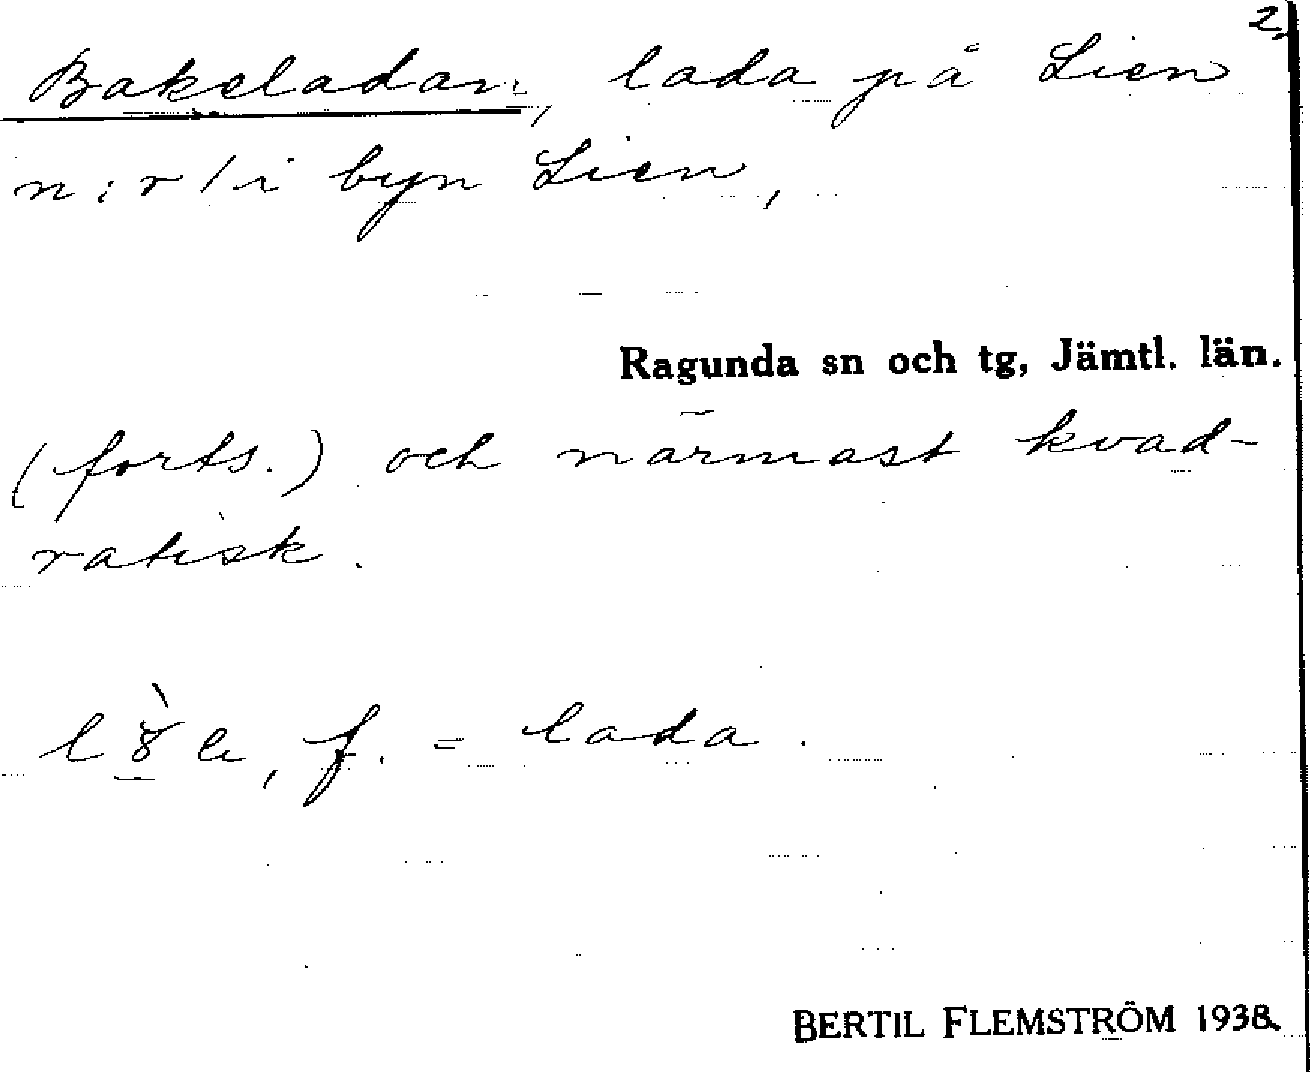 2.
Bakeladan, lada på Lien
n:r 1 i byn Lien,
Ragunda sn och tg, Jämtl. län.
(forts.) och närmast kvad-
ratisk.
f. = lada.
BERTIL FLEMSTRÖM 1938.